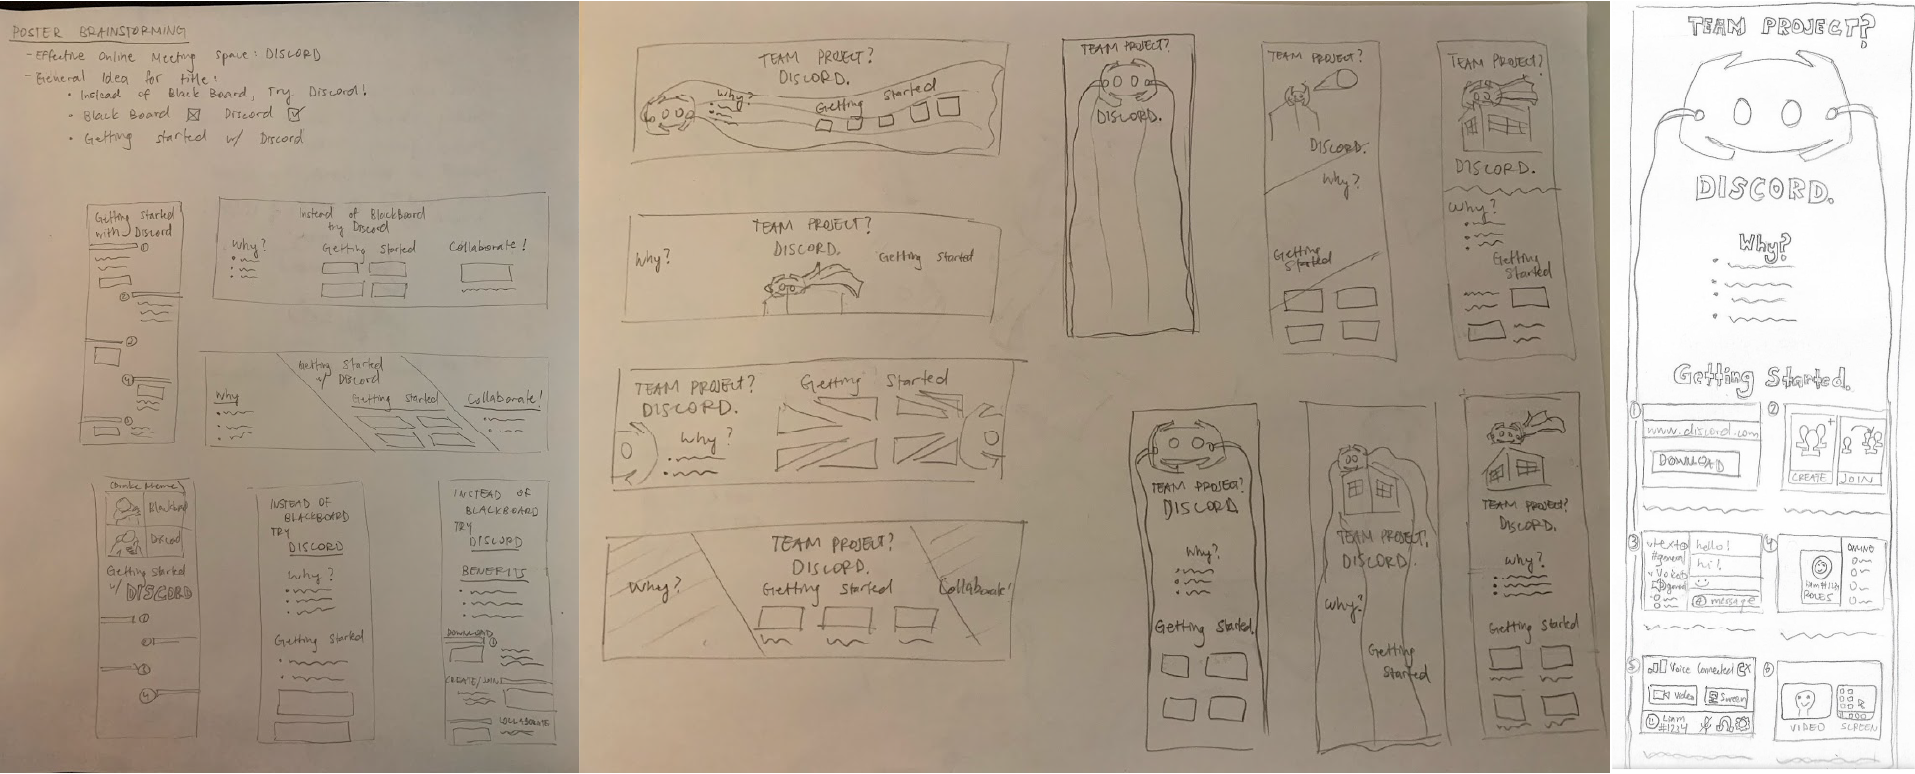 POSTER BRAINSTORMING
- Effective Online Meeting Space: DISCORD
- General Idea for title:
• Instead of Black Board, Try Discord!
• Black Board ☒ Discord ☑
• Getting started w/ Discord
Getting Started
with Discord
①
②
③
④
Instead of BlackBoard
try Discord
Why?
Getting Started
Collaborate!
Getting Started
w/ Discord
Why
Getting Started
Collaborate!
Discord
Getting Started
w/ DISCORD
①
②
③
④
INSTEAD OF
BLACKBOARD
TRY
DISCORD
Why?
Getting Started
INSTEAD OF
BLACKBOARD
TRY
DISCORD
BENEFITS
DOWNLOAD
①
CREATE/JOIN
COLLABORATE
TEAM PROJECT?
DISCORD.
Why?
Getting Started
TEAM PROJECT?
DISCORD.
Why?
Getting Started
TEAM PROJECT?
DISCORD.
Why?
Getting Started
TEAM PROJECT?
DISCORD.
Why?
Getting Started
Collaborate!
TEAM PROJECT?
DISCORD.
TEAM PROJECT?
DISCORD.
Why?
Getting
Started
TEAM PROJECT?
DISCORD.
Why?
Getting
Started
TEAM PROJECT?
DISCORD
Why?
Getting Started
TEAM PROJECT.
DISCORD.
Why?
Getting
Started
TEAM PROJECT?
DISCORD.
Why?
Getting Started
TEAM PROJECT?
DISCORD.
Why?
Getting Started.
①
www.discord.com
DOWNLOAD
②
CREATE
JOIN
③
text
#general
Voice
general
hello!
hi!
message
④
ONLINE
ROLES
⑤
Voice Connected
Video
Screen
Liam
#1234
⑥
VIDEO
SCREEN